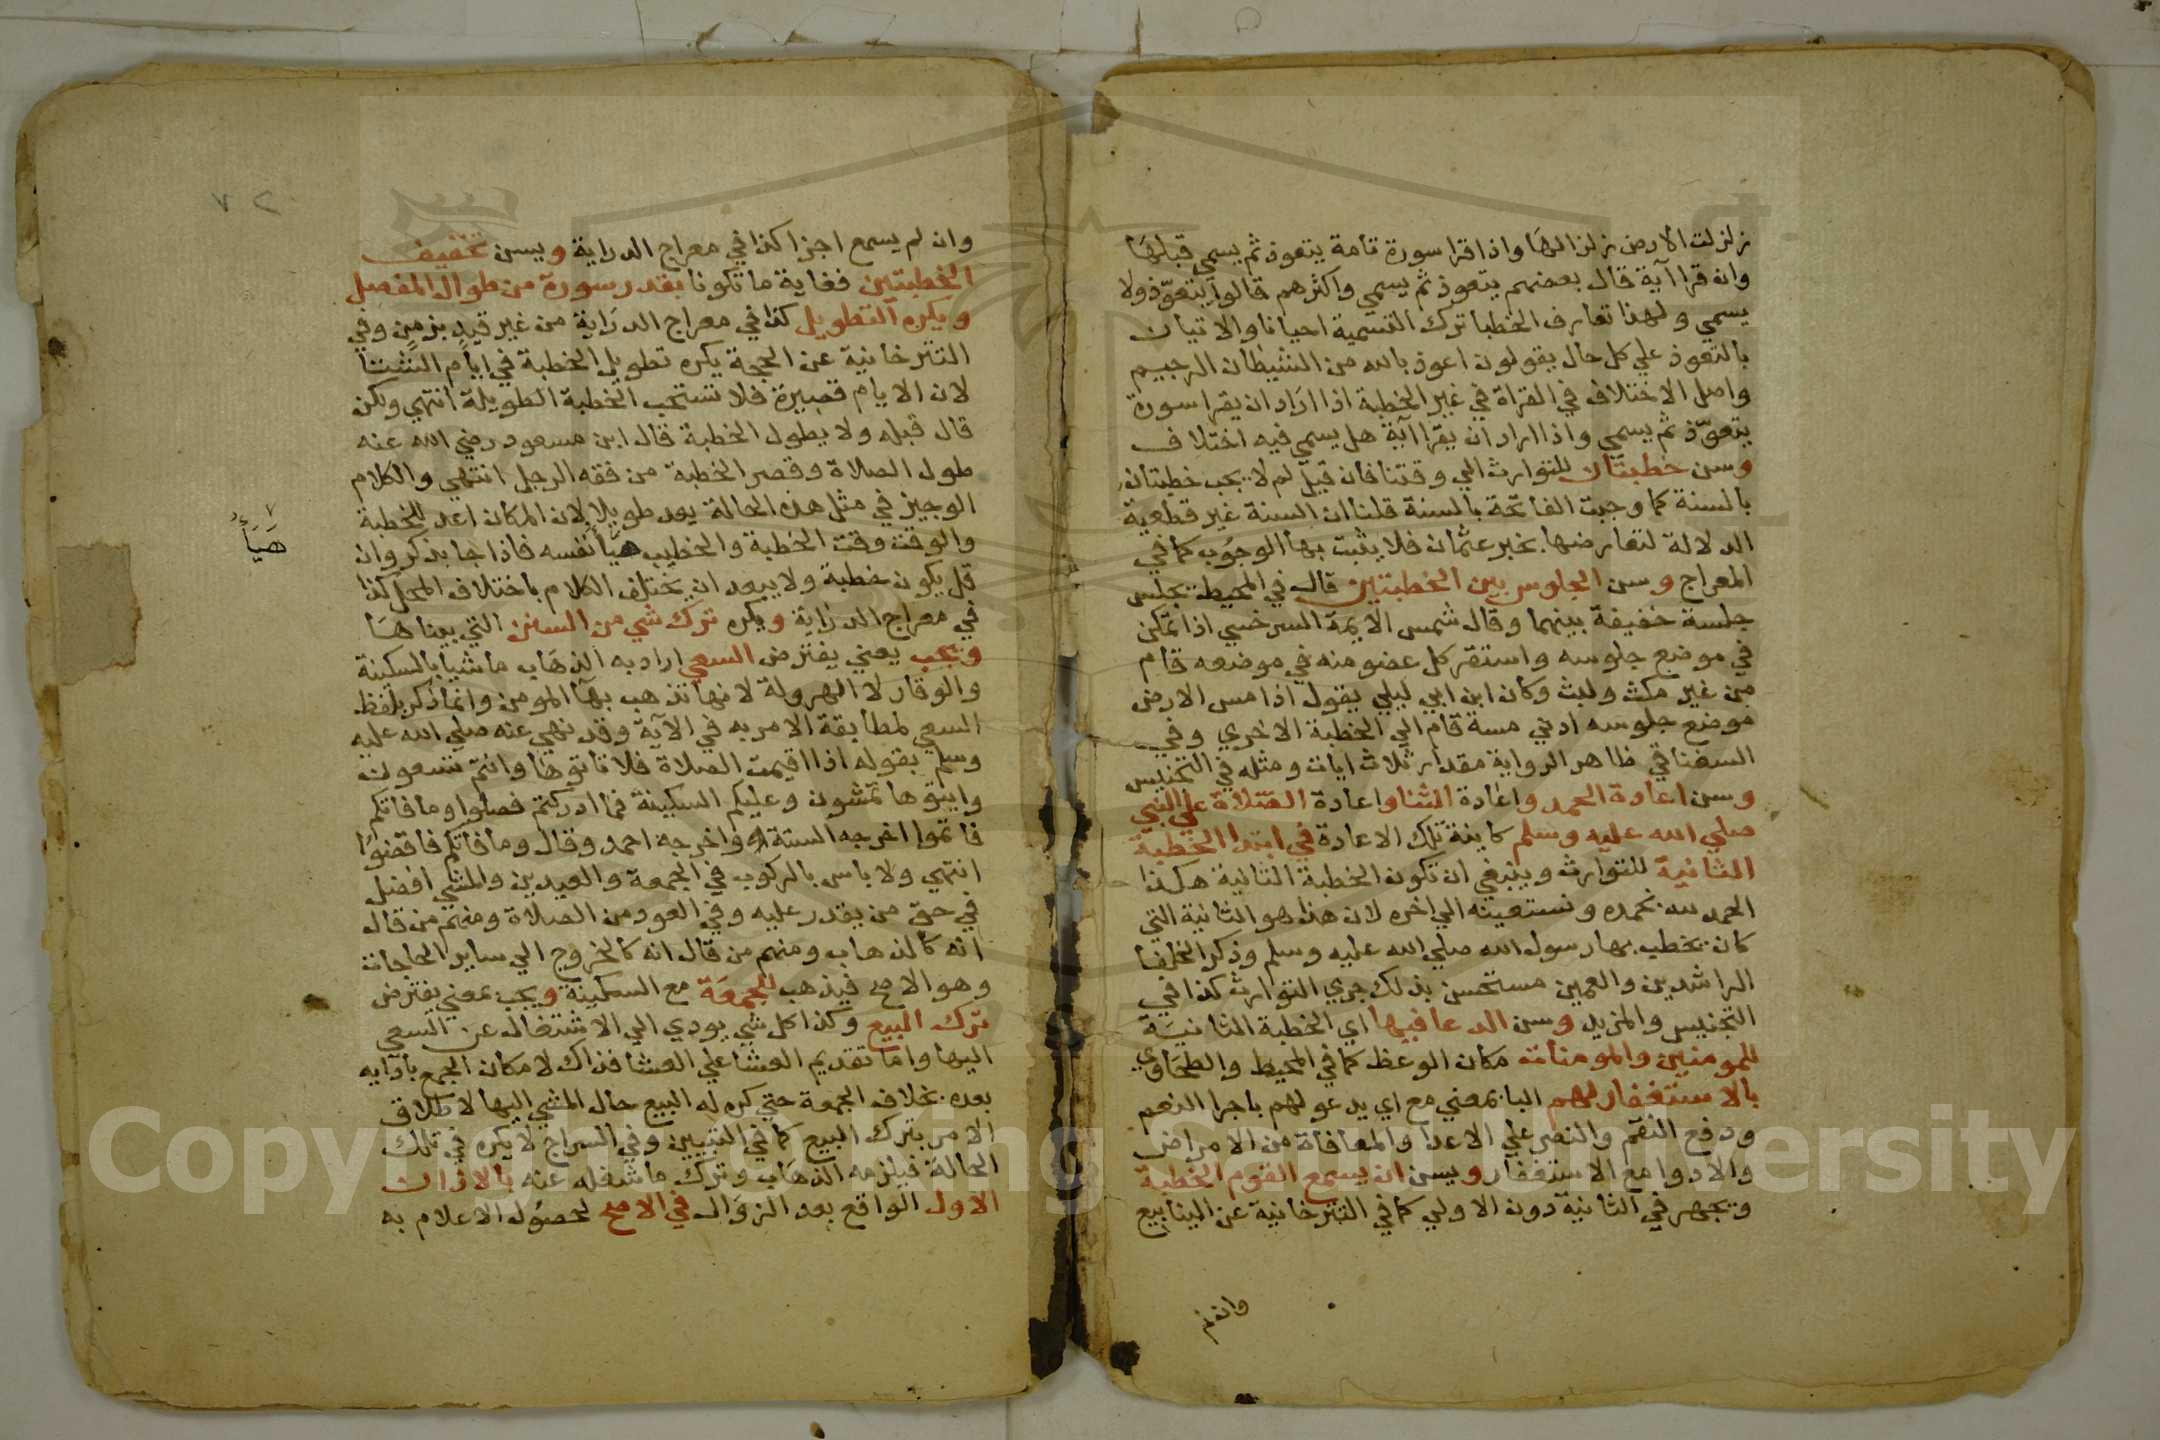 زلزلت الارض زلزالها واذا قرا سورة تامة يتعوذ ثم يسمي قبلها
وان قرا آية قال بعضهم يتعوذ ثم يسمي واكثرهم قالوا يتعوّذ ولا
يسمي ولهذا تعارف الخطبا ترك التسمية احيانا والاتيان
بالتعوذ علي كل حال يقولون اعوذ بالله من الشيطان الرجيم
واصل الاختلاف في القراة في غير الخطبة اذا اراد ان يقرا سورة
يتعوّذ ثم يسمي واذا اراد ان يقرا آية هل يسمي فيه اختلاف
وسن خطبتان للتوارث الي وقتنا فان قيل لم لا يجب خطبتان
بالسنة كما وجبت الفاتحة بالسنة قلنا ان السنة غير قطعية
الدلالة لتعارضها بخبر عثمان فلا يثبت بها الوجوب كما في
المعراج وسن الجلوس بين الخطبتين قال في المحيط يجلس
جلسة خفيفة بينهما وقال شمس الايمة السرخسي اذا تمكن
في موضع جلوسه واستقر كل عضو منه في موضعه قام
من غير مكث ولبث وكان ابن ابي ليلي يقول اذا مس الارض
موضع جلوسه ادني مسة قام الي الخطبة الاخري وفي
السغناقي ظاهر الرواية مقدار ثلاث ايات ومثله في التجنيس
وسن اعادة الحمد واعادة الثنا واعادة الصلاة علي النبي
صلي الله عليه وسلم كاينة تلك الاعادة في ابتدا الخطبة
الثانية للتوارث وينبغي ان تكون الخطبة الثانية هكذا
الحمد لله نحمده ونستعينه الي اخره لان هذا هو الثانية التي
كان يخطب بها رسول الله صلي الله عليه وسلم وذكر الخلفا
الراشدين والعمين مستحسن بذلك جري التوارث كذا في
التجنيس والمزيد وسن الدعا فيها اي الخطبة الثانية
للمومنين والمومنات مكان الوعظ كما في المحيط والطحاوي
بالاستغفار لهم البا بمعني مع اي يدعو لهم باجرا النعم
ودفع النقم والنصر علي الاعدا والمعافاة من الامراض
والادوا مع الاستغفار ويسن ان يسمع القوم الخطبة
ويجهر في الثانية دون الاولي كما في التترخانية عن الينابيع
وان لم
٢٧
وان لم يسمع اجزا كذا في معراج الدراية ويسن تخفيف
الخطبتين فغاية ما تكونا بقدر سورة من طوال المفصل
ويكره التطويل كذا في معراج الدراية من غير قيد بزمن وفي
التترخانية عن الحجة يكره تطويل الخطبة في ايام الشتا
لان الايام قصيرة فلا تستحب الخطبة الطويلة انتهي ولكن
قال قبله ولا يطول الخطبة قال ابن مسعود رضي الله عنه
طول الصلاة وقصر الخطبة من فقه الرجل انتهي والكلام
الوجيز في مثل هذه الحالة يعد طويلا لان المكان اعد للخطبة
والوقت وقت الخطبة والخطيب هيأ نفسه فاذا جا بذكر وان
هَيَأَ
قل يكون خطبة ولا يبعد ان يختلف الكلام باختلاف المحل كذا
في معراج الدراية ويكره ترك شي من السنن التي بيناها
ويجب يعني يفترض السعي اراد به الذهاب ماشيا بالسكينة
والوقار لا الهرولة لانها تذهب بهآ المومن وانما ذكر بلفظ
السعي لمطابقة الامر به في الآية وقد نهي عنه صلي الله عليه
وسلم بقوله اذا اقيمت الصلاة فلا تاتوها وانتم تسعون
وايتوها تمشون وعليكم السكينة فما ادركتم فصلوا وما فاتكم
فاتموا اخرجه الستة واخرجه احمد وقال وما فاتكم فاقضوا
انتهي ولا باس بالركوب في الجمعة والعيدين والمشي افضل
في حق من يقدر عليه وفي العود من الصلاة ومنهم من قال
انه كالذهاب ومنهم من قال انه كالخروج الي ساير الحاجات
وهو الاصح فيذهب للجمعة مع السكينة ويجب بمعني يفترض
ترك البيع وكذا كل شي يودي الي الاشتغال عن السعي
اليها واما تقديم العشا علي العشا فذاك لامكان الجمع بادايه
بعده بخلاف الجمعة حتي كره له البيع حال المشي اليها لاطلاق
الامر بترك البيع كما في التبيين وفي السراج لا يكره في تلك
الحالة فيلزمه الذهاب وترك ما شغله عنه بالاذان
الاول الواقع بعد الزوال في الاصح لحصول الاعلام به
Copyright © King Saud University